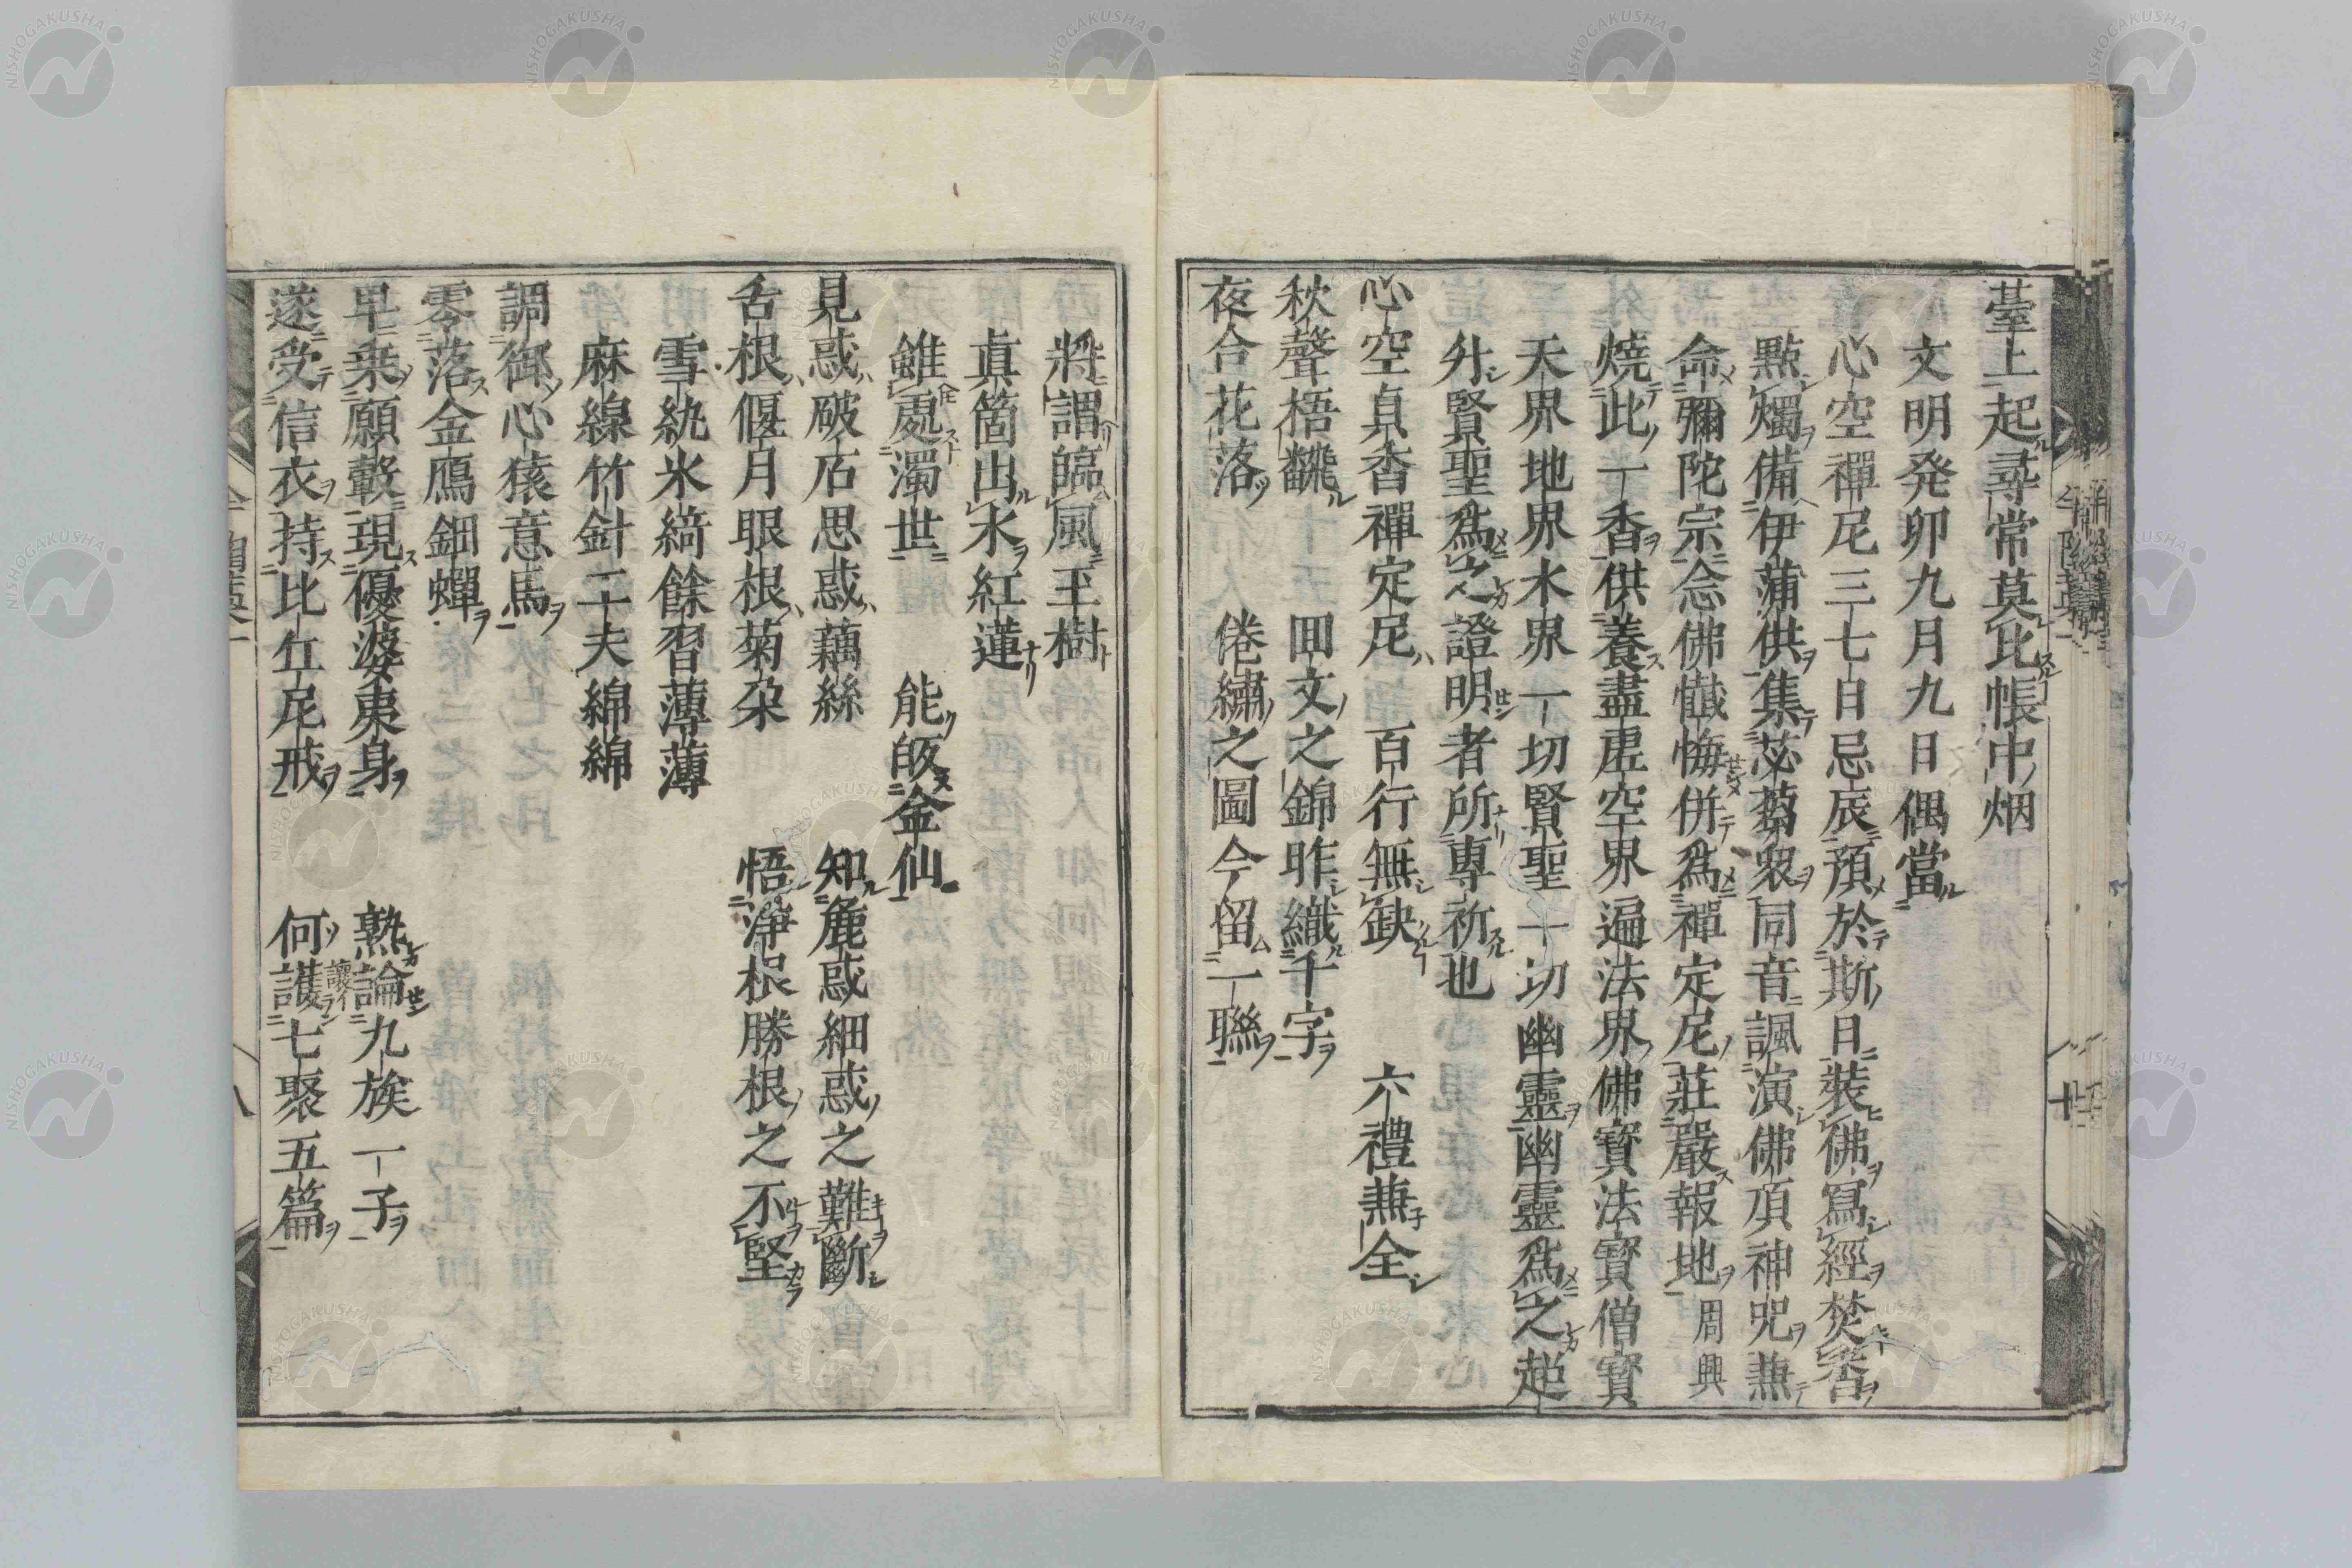 臺上起尋常莫比帳中烟
文明発卯九月九日偶當
心空禪尼三七日忌辰預於斯日裝佛冩經焚香
點燭備伊蒲供集苾蒭衆同音諷演佛頂神咒兼
命彌陀宗念佛懴悔併爲禪定尼莊嚴報地周興
燒此一香供養盡虚空界遍法界佛寶法寶僧寶
天界地界水界一切賢聖十切幽靈幽靈爲之趍
升賢聖爲之證明者所專祈也
心空貞香禪定尼 百行無缺 六禮兼全
秋聲梧飜 回文之錦昨織千字
夜合花落 倦繡之圖今留一聯
將謂臨風玉樹
真箇出水紅蓮
雖處濁世 能皈金仙
見惑破石思惑藕絲 知麁惑細惑之難斷
舌根偃月眼根菊朶 悟淨根勝根之不堅
雪紈氷綺餘習薄薄
麻線竹針工夫綿綿
調御心猿意馬
零落金鴈鈿蟬
早乗願轂現優婆夷身 熟論九族一子
遂受信衣持比丘尼戒 何護七聚五篇
八
十
NISHOGAKUSHA